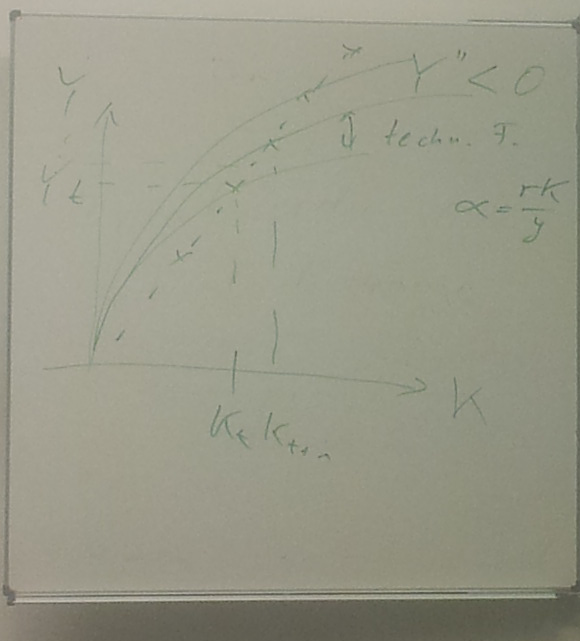 Y
Y" < 0
techn. F.
Y t
α = rK/y
K
K t K t+n